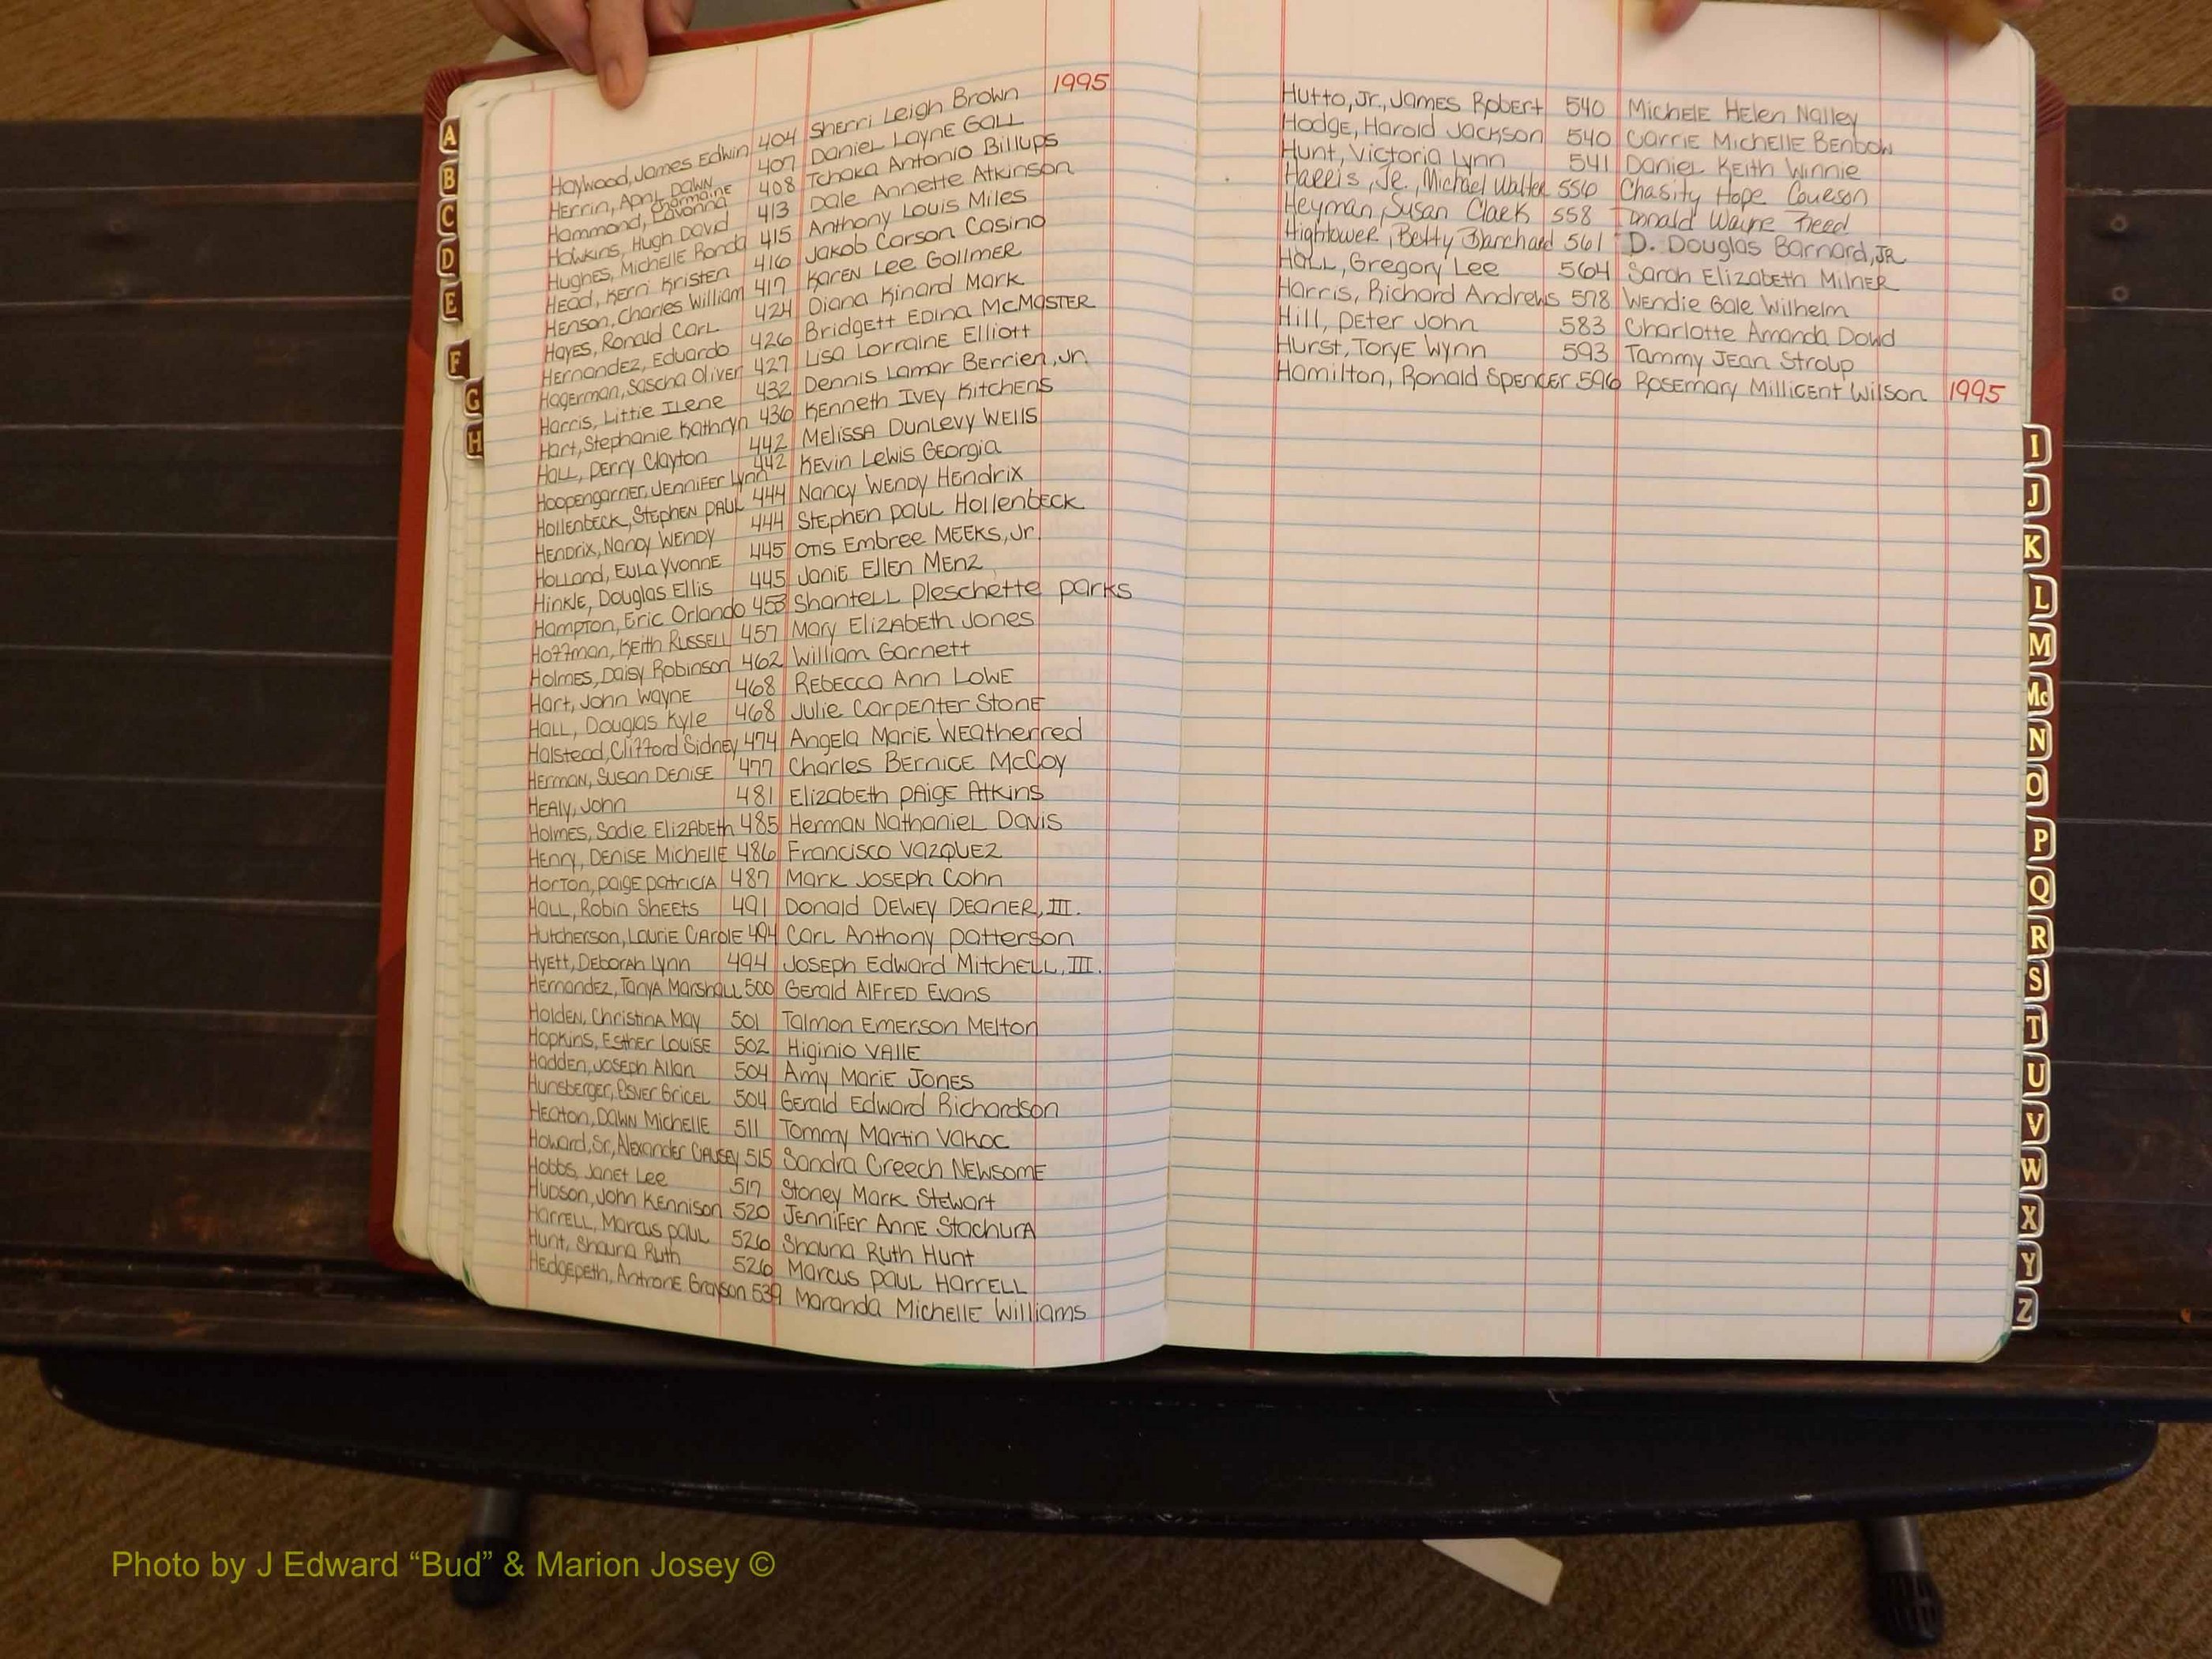 1995
Haywood, James Edwin 404 Sherri Leigh Brown
Herrin, April Dawn 407 Daniel Layne Gall
Hammond, Lavonna Charmaine 408 Tchaka Antonio Billups
Hawkins, Hugh David 413 Dale Annette Atkinson
Hughes, Michelle Ronda 415 Anthony Louis Miles
Head, Kerri Kristen 416 Jakob Carson Casino
Henson, Charles William 417 Karen Lee Gollmer
Hayes, Ronald Carl 424 Diana Kinard Mark
Hernandez, Eduardo 426 Bridgett Edina McMaster
Hagerman, Sascha Oliver 427 Lisa Lorraine Elliott
Harris, Littie Ilene 432 Dennis Lamar Berrien, Jr.
Hart, Stephanie Kathryn 436 Kenneth Ivey Kitchens
Hall, Perry Clayton 442 Melissa Dunlevy Wells
Hoopengarner, Jennifer Lynn 442 Kevin Lewis Georgia
Hollenbeck, Stephen Paul 444 Nancy Wendy Hendrix
Hendrix, Nancy Wendy 444 Stephen Paul Hollenbeck
Holland, Eula Yvonne 445 Otis Embree Meeks, Jr.
Hinkle, Douglas Ellis 445 Janie Ellen Menz
Hampton, Eric Orlando 453 Shantell Pleschette Parks
Hoffman, Keith Russell 457 Mary Elizabeth Jones
Holmes, Daisy Robinson 462 William Garnett
Hart, John Wayne 468 Rebecca Ann Lowe
Hall, Douglas Kyle 468 Julie Carpenter Stone
Halstead, Clifford Sidney 474 Angela Marie Weatherred
Herman, Susan Denise 477 Charles Bernice McCoy
Healy, John 481 Elizabeth Paige Atkins
Holmes, Sadie Elizabeth 485 Herman Nathaniel Davis
Henry, Denise Michelle 486 Francisco Vazquez
Horton, Paige Patricia 487 Mark Joseph Cohn
Hall, Robin Sheets 491 Donald Dewey Deaner, III.
Hutcherson, Laurie Carole 494 Carl Anthony Patterson
Hyett, Deborah Lynn 494 Joseph Edward Mitchell, III.
Hernandez, Tanya Marshall 500 Gerald Alfred Evans
Holden, Christina May 501 Talmon Emerson Melton
Hopkins, Esther Louise 502 Higinio Valle
Hadden, Joseph Allan 504 Amy Marie Jones
Hunsberger, Esver Gricel 504 Gerald Edward Richardson
Heaton, Dawn Michelle 511 Tommy Martin Vakoc
Howard, Sr., Alexander Causey 515 Sandra Creech Newsome
Hobbs, Janet Lee 517 Stoney Mark Stewart
Hudson, John Kennison 520 Jennifer Anne Stachura
Harrell, Marcus Paul 526 Shauna Ruth Hunt
Hunt, Shauna Ruth 526 Marcus Paul Harrell
Hedgepeth, Antrone Grayson 539 Maranda Michelle Williams
Hutto, Jr., James Robert 540 Michele Helen Nalley
Hodge, Harold Jackson 540 Carrie Michelle Benbow
Hunt, Victoria Lynn 541 Daniel Keith Winnie
Harris, Jr., Michael Walter 556 Chasity Hope Courson
Heyman, Susan Clark 558 Donald Wayne Reed
Hightower, Betty Blanchard 561 D. Douglas Barnard, Jr
Hall, Gregory Lee 564 Sarah Elizabeth Milner
Harris, Richard Andrews 578 Wendie Gale Wilhelm
Hill, Peter John 583 Charlotte Amanda Dowd
Hurst, Torye Wynn 593 Tammy Jean Stroup
Hamilton, Ronald Spencer 596 Rosemary Millicent Wilson 1995
A
B
C
D
E
F
G
H
I
J
K
L
M
Mc
N
O
P
Q
R
S
T
U
V
W
X
Y
Z
Photo by J Edward “Bud” & Marion Josey ©